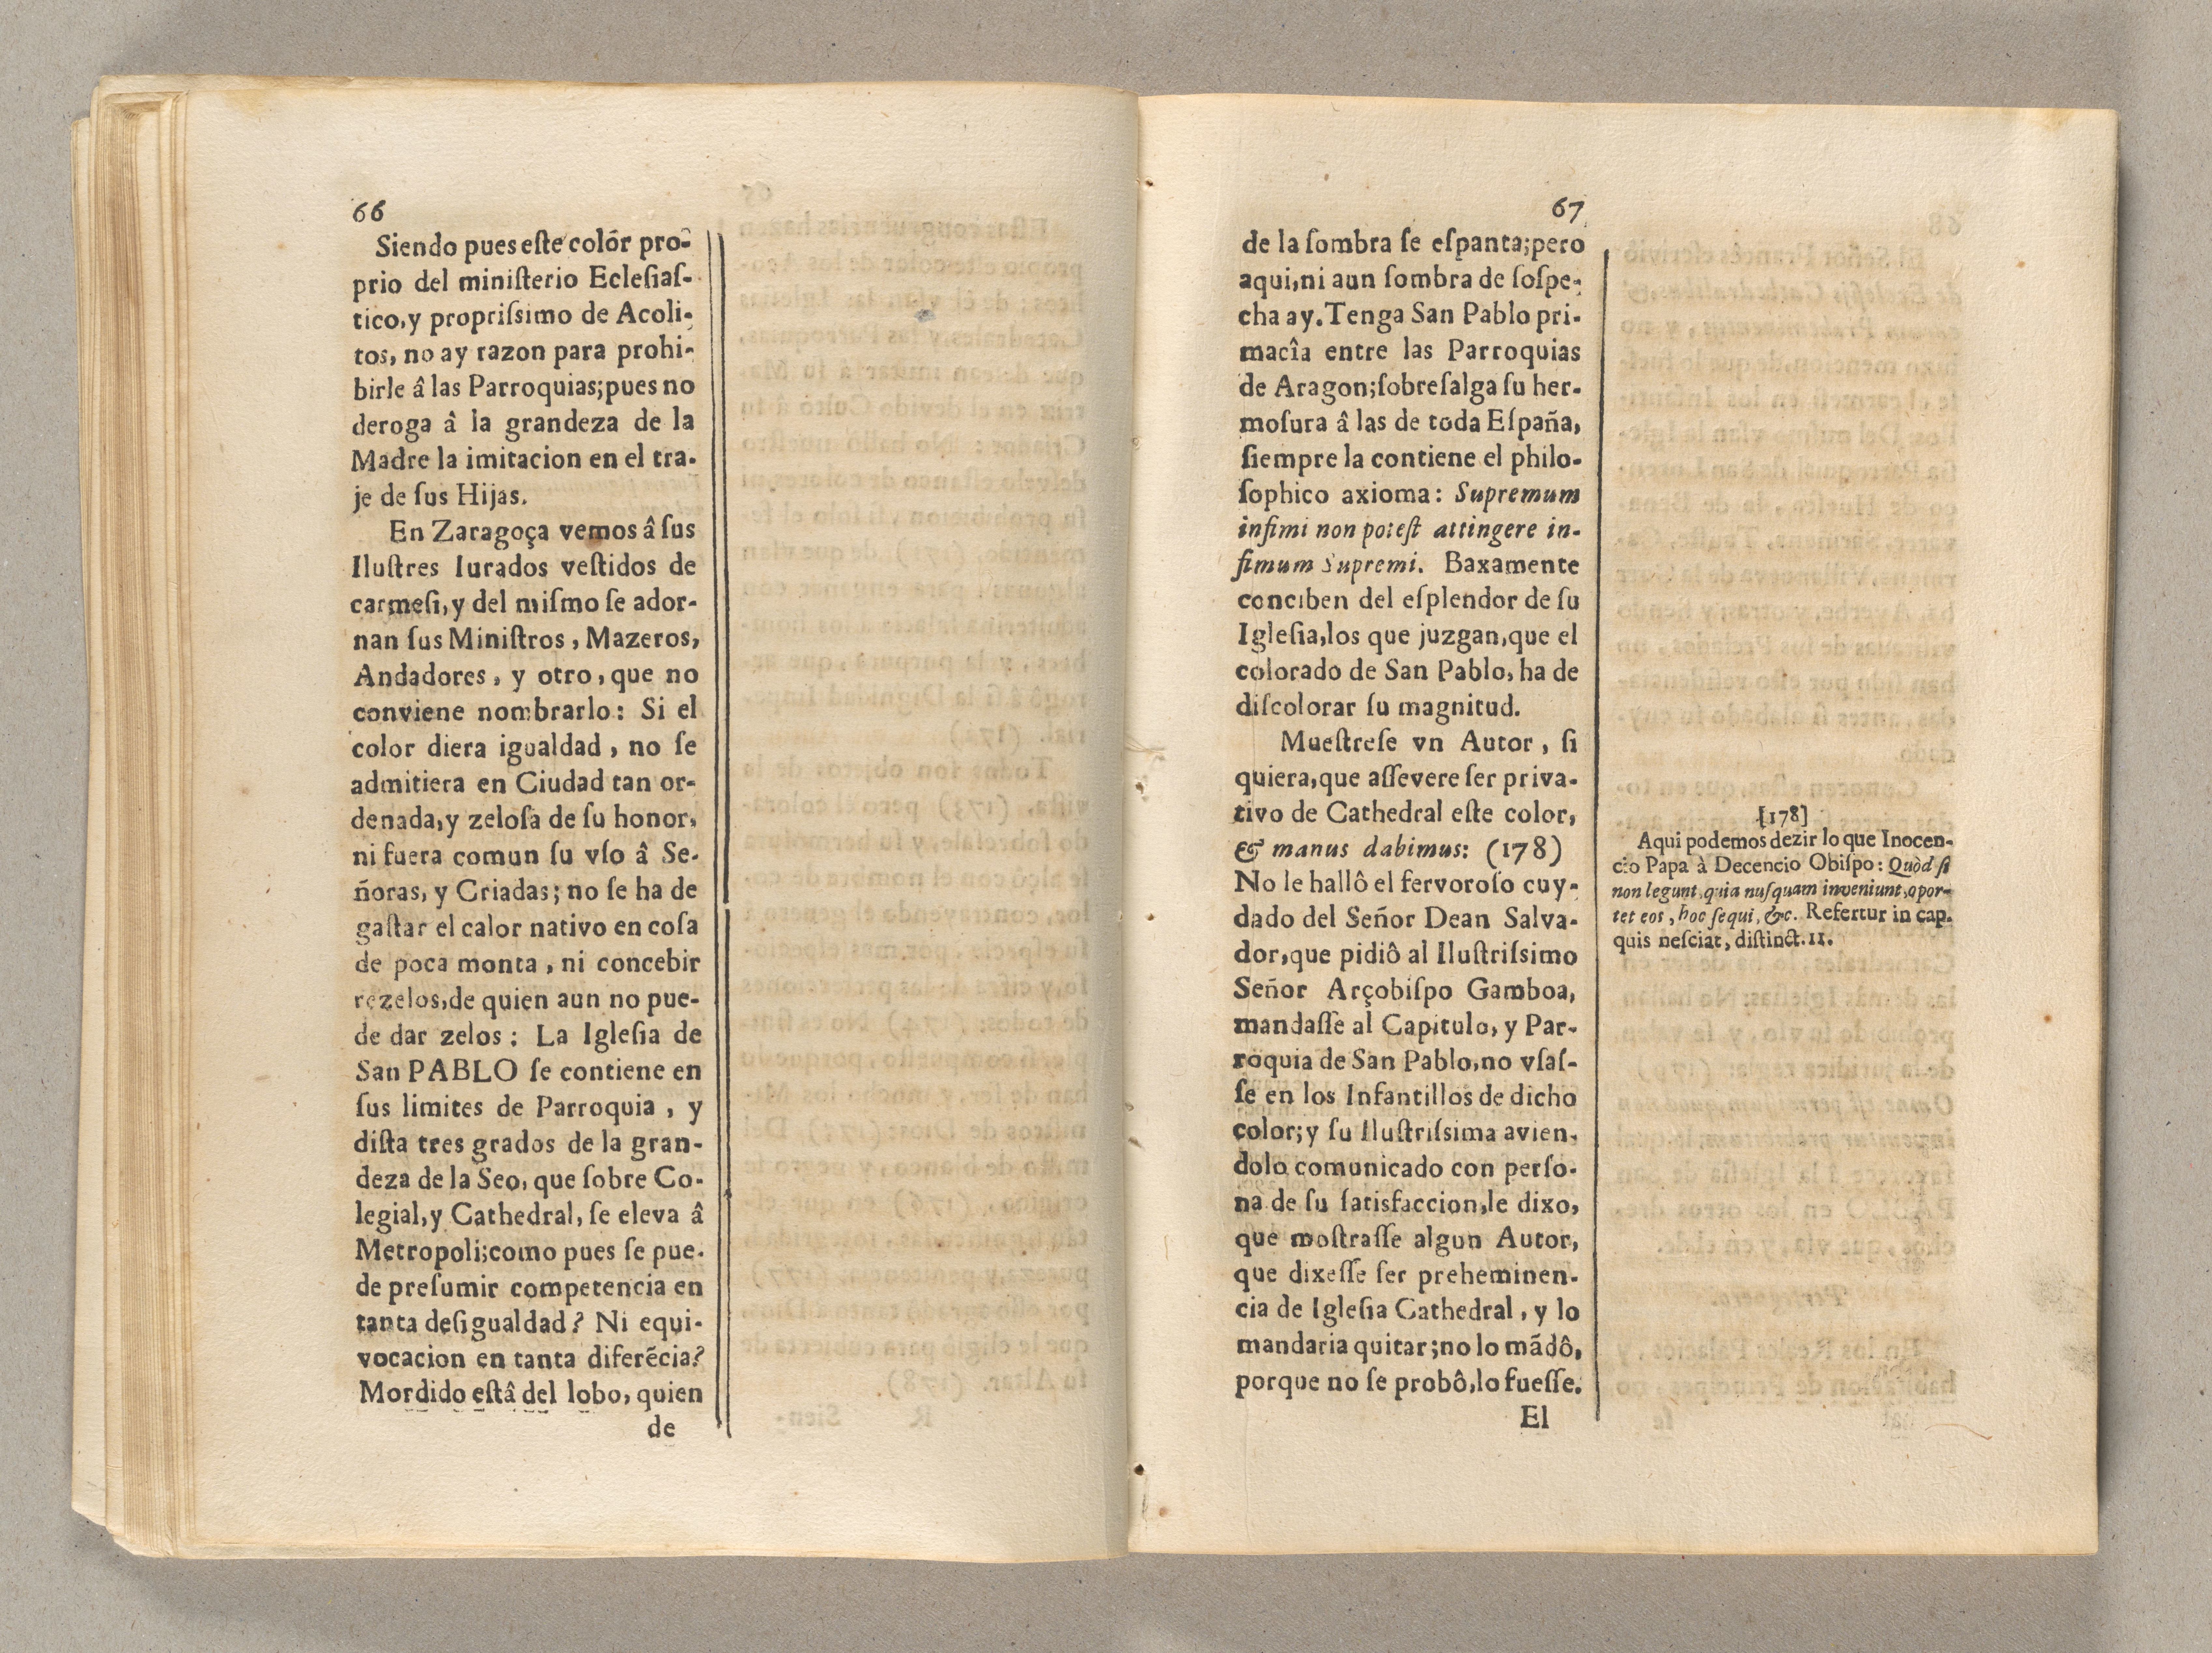 66
Siendo pues este colór pro-
prio del ministerio Eclesias-
tico, y proprissimo de Acoli-
tos, no ay razon para prohi-
birle â las Parroquias; pues no
deroga â la grandeza de la
Madre la imitacion en el tra-
je de sus Hijas.
En Zaragoça vemos â sus
Ilustres Iurados vestidos de
carmesi, y del mismo se ador-
nan sus Ministros, Mazeros,
Andadores, y otro, que no
conviene nombrarlo: Si el
color diera igualdad, no se
admitiera en Ciudad tan or-
denada, y zelosa de su honor,
ni fuera comun su vso â Se-
ñoras, y Criadas; no se ha de
gastar el calor nativo en cosa
de poca monta, ni concebir
rezelos, de quien aun no pue-
de dar zelos: La Iglesia de
San PABLO se contiene en
sus limites de Parroquia, y
dista tres grados de la gran-
deza de la Seo, que sobre Co-
legial, y Cathedral, se eleva â
Metropoli; como pues se pue-
de presumir competencia en
tanta desigualdad? Ni equi-
vocacion en tanta diferẽcia?
Mordido estâ del lobo, quien
de
67
de la sombra se espanta; pero
aqui, ni aun sombra de sospe-
cha ay. Tenga San Pablo pri-
macîa entre las Parroquias
de Aragon; sobresalga su her-
mosura â las de toda España,
siempre la contiene el philo-
sophico axioma: Supremum
infimi non potest attingere in-
fimum Supremi. Baxamente
conciben del esplendor de su
Iglesia, los que juzgan, que el
colorado de San Pablo, ha de
discolorar su magnitud.
Muestrese vn Autor, si
quiera, que assevere ser priva-
tivo de Cathedral este color,
& manus dabimus: (178)
No le hallô el fervoroso cuy-
dado del Señor Dean Salva-
dor, que pidiô al Ilustrissimo
Señor Arçobispo Gamboa,
mandasse al Capitulo, y Par-
roquia de San Pablo, no vsas-
se en los Infantillos de dicho
color; y su Ilustrissima avien-
dolo comunicado con perso-
na de su satisfaccion, le dixo,
que mostrasse algun Autor,
que dixesse ser preheminen-
cia de Iglesia Cathedral, y lo
mandaria quitar; no lo mãdô,
porque no se probô, lo fuesse.
El
[178]
Aqui podemos dezir lo que Inocen-
cio Papa à Decencio Obispo: Quòd si
non legunt, quia nusquam inveniunt, opor-
tet eos, hoc sequi, &c. Refertur in cap.
quis nesciat, distinct. 11.